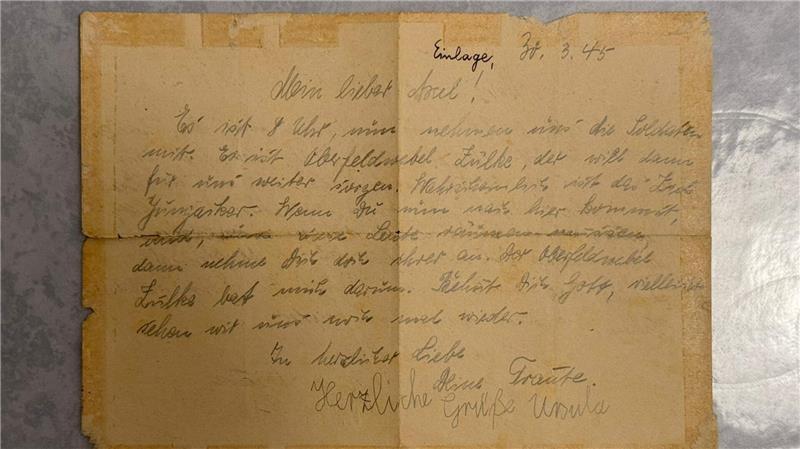 Einlage, 30. 3. 45
Mein lieber Axel!
Es ist 8 Uhr, nun nehmen uns die Soldaten
mit. Es ist Oberfeldwebel Zülke, der will dann
für uns weiter sorgen. Wahrscheinlich ist das Ziel
Junjacker. Wenn Du nun nach hier kommst,
und, und Leute räumen müssen,
dann nehme Dich doch ihrer an. Der Oberfeldwebel
Zülke bat mich darum. Behüt Dich Gott, vielleicht
sehen wir uns noch mal wieder.
In herzlicher Liebe
Deine Traute.
Herzliche Grüße Ursula